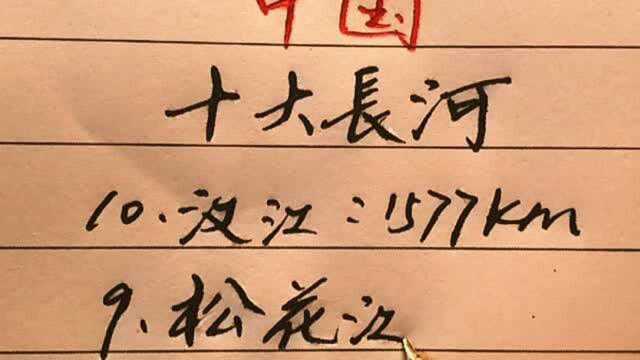 中国
十大長河
10.汉江:1577km
9.松花江